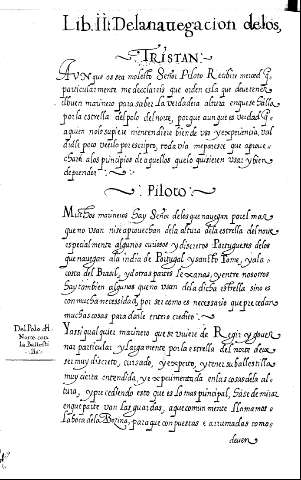 Lib. II: De la nauegacion de los,
TRISTAN.
AVNque os sea molesto Señor Piloto Recibire merced q̃
particularmente me declareis que orden es la que deue tener
el buen marinero para saber la verdadera altura en que se halla
por la estrella del polo del norte, porque aunque es verdad q̃
a quien no lo supiere mentendiere bien de vso y esperiencia, val
dra le poco verlo por escripto, toda via me parece que aproue
chara a los principios de aquellos que lo quisieren vsar y bien
deprender.
Piloto
Muchos marineros hay Señor de los que nauegan por el mar
que no vsan ni se aprouechan del altura de la estrella del norte
especialmente algunos curiosos y discretos Portugueses de los
que nauegan a la india de Portugal y sancto Tome, y a la
costa del Brasil, y de otras partes lexanas, y entre nosotros
hay tambien algunos que no vsan de la dicha estrella sino es
con mucha necessidad, por ser como es necessario que precedan
muchas cosas para darle entero credito.
Del Polo del
Norte con
la Ballesti
lla.
Y assi qualquier marinero que se vuiere de Regir y gouer
nar particular y largamente por la estrella del norte deue
ser muy discreto, cursado, y experto, y tener su ballestilla
muy cierta entendida, y experimentada en las cosas de la al
tura, y precediendo esto que es lo mas principal, ha se de mirar
en que parte van las guardas, a que comunmente llamamos
la boca de la Bozina, para que con puestas e arrumadas como
deuen